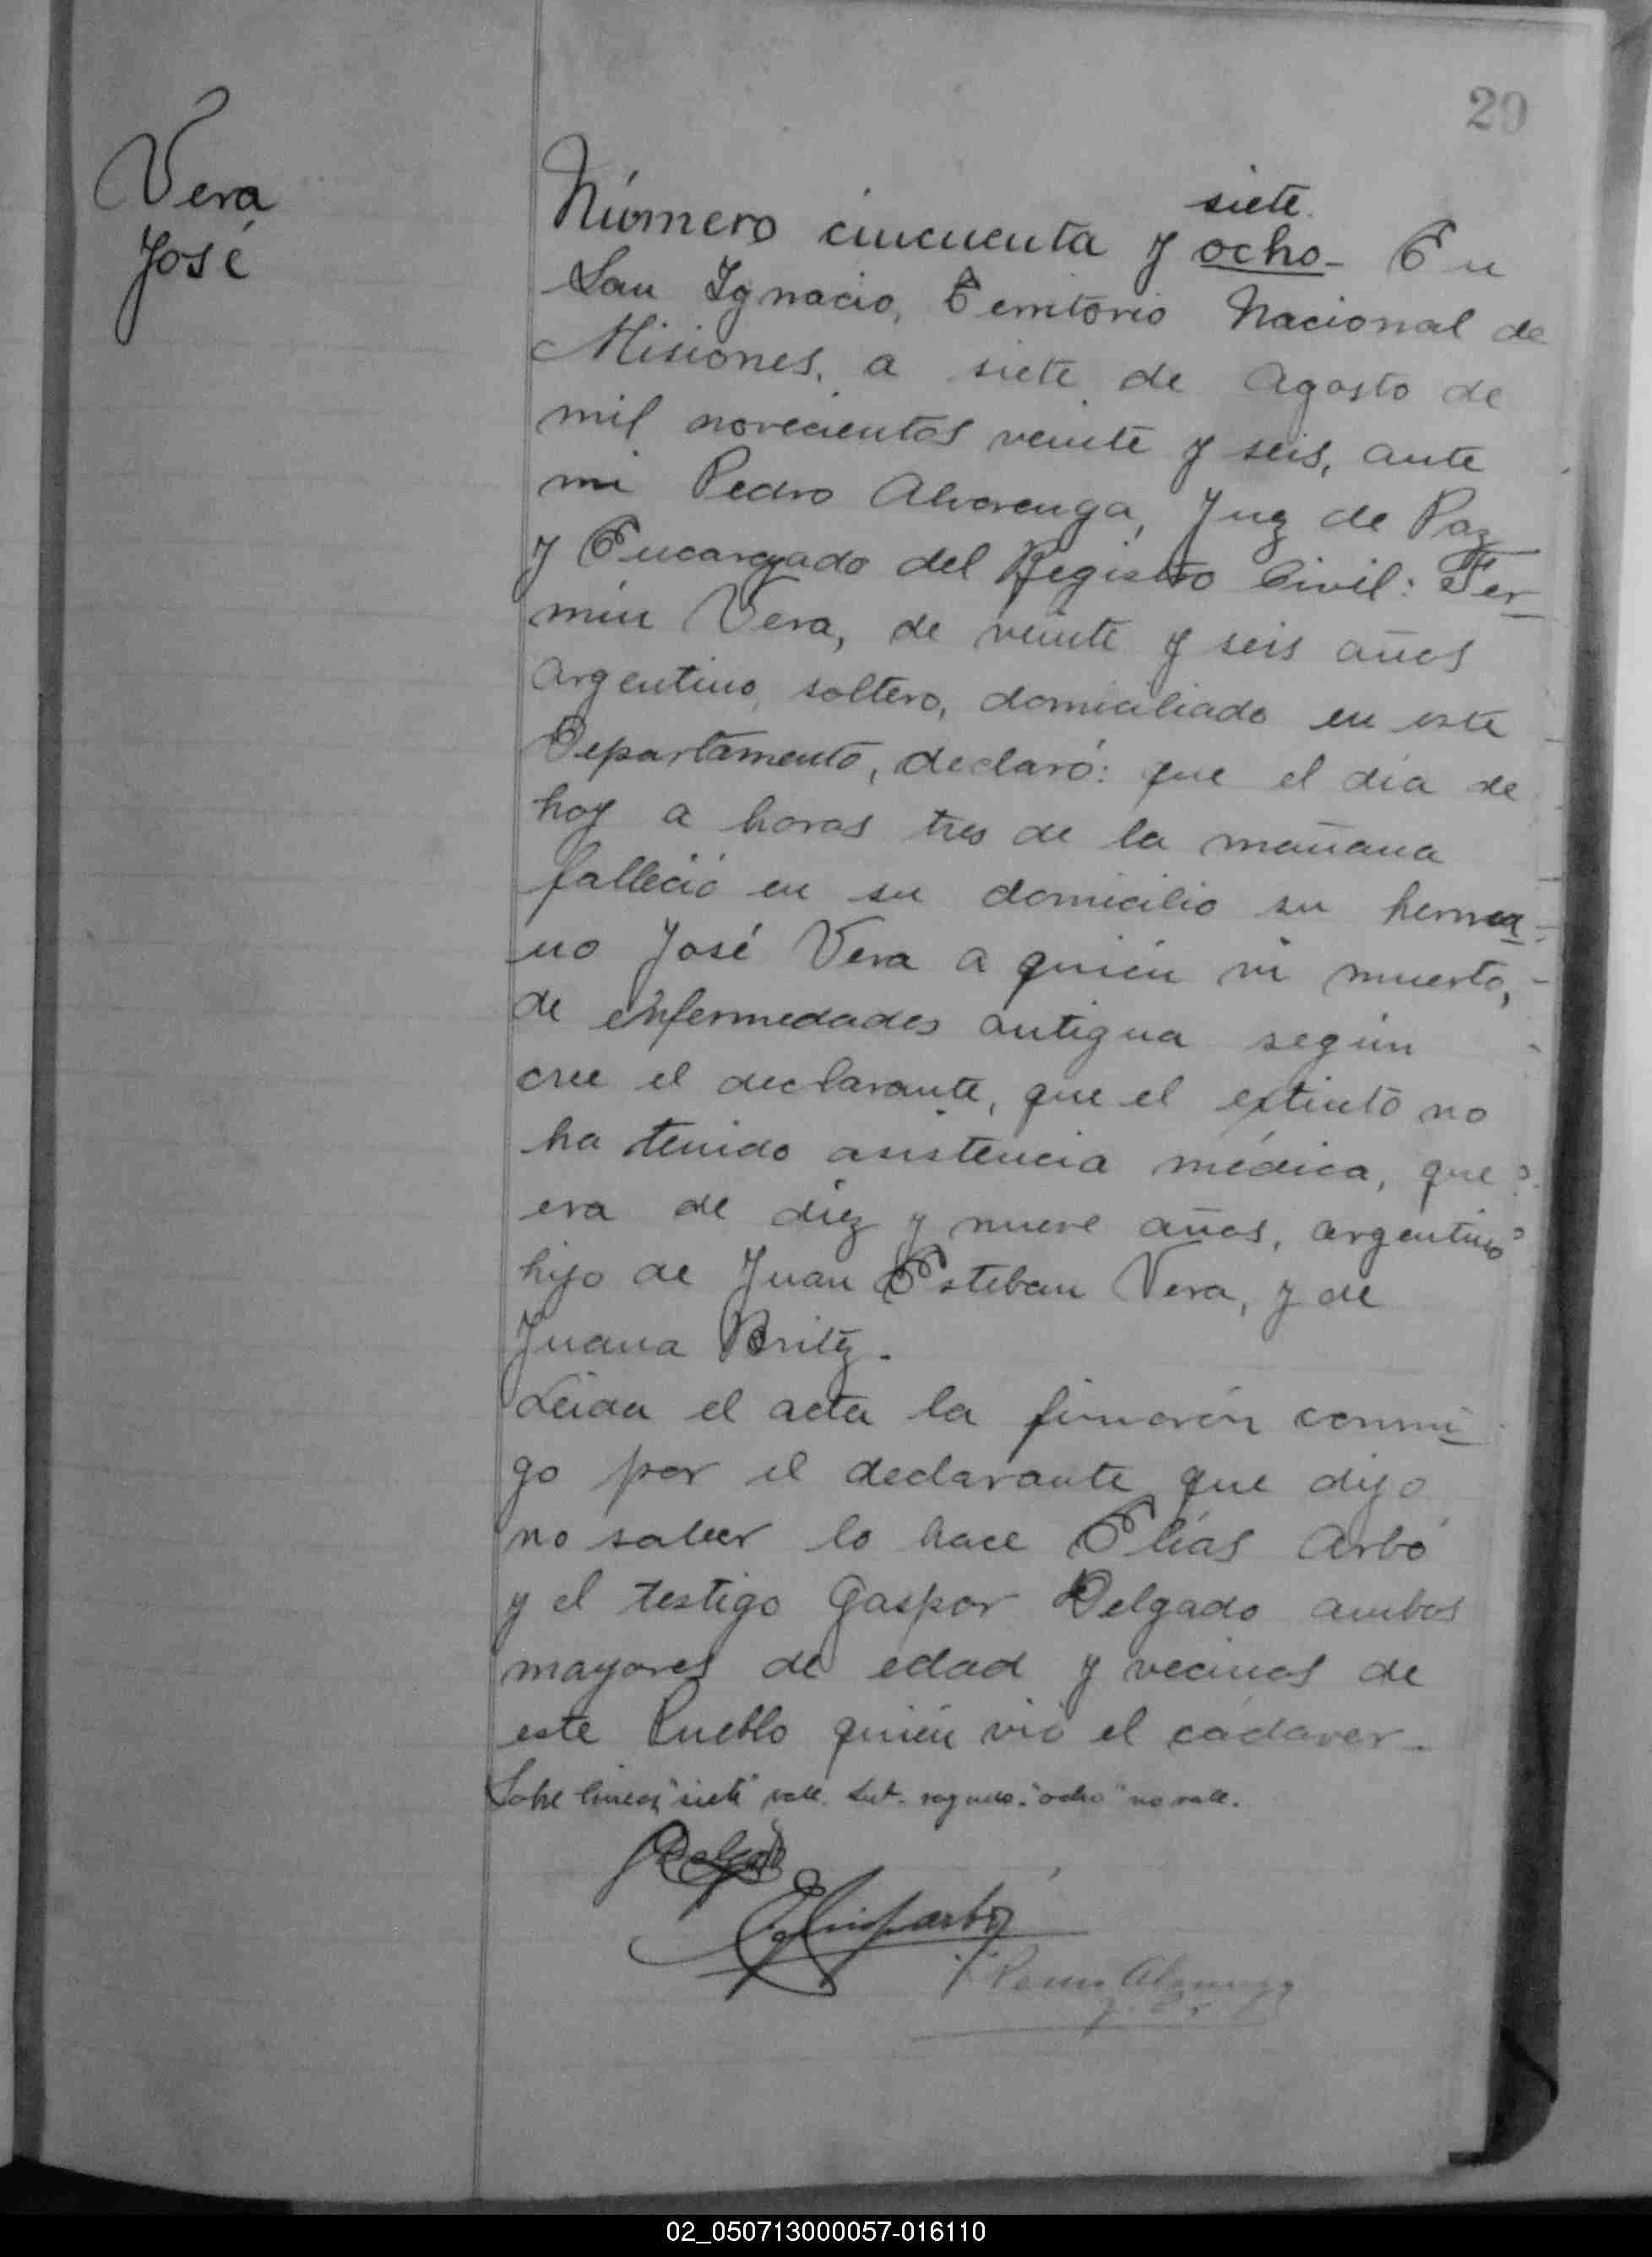 29
Vera
José
siete.
Número cincuenta y ocho- En
San Ignacio, Territorio Nacional de
Misiones, a siete de Agosto de
mil novecientos veinte y seis, ante
mi Pedro Alvarenga, Juez de Paz
y Encargado del Registro Civil: Fer-
min Vera, de veinte y seis años
argentino, soltero, domiciliado en este
Departamento, declaró: que el día de
hoy a horas tres de la mañana
falleció en su domicilio su herma-
no José Vera a quién vi muerto,
de enfermedades antigua según
cree el declarante, que el extinto no
ha tenido asistencia médica, que
era de diez y nueve años, argentino
hijo de Juan Esteban Vera, y de
Juana Britez.
Leida el acta la firmarón conmi-
go por el declarante que dijo
no saber lo hace Elías Arbó
y el testigo Gaspar Delgado ambos
mayores de edad y vecinos de
este Pueblo quién vió el cádaver-
Sobre linea, "siete" vale. Sub. rayado. "ocho" no vale.
Elias Arbó
Pedro Alvarenga
02_050713000057-016110